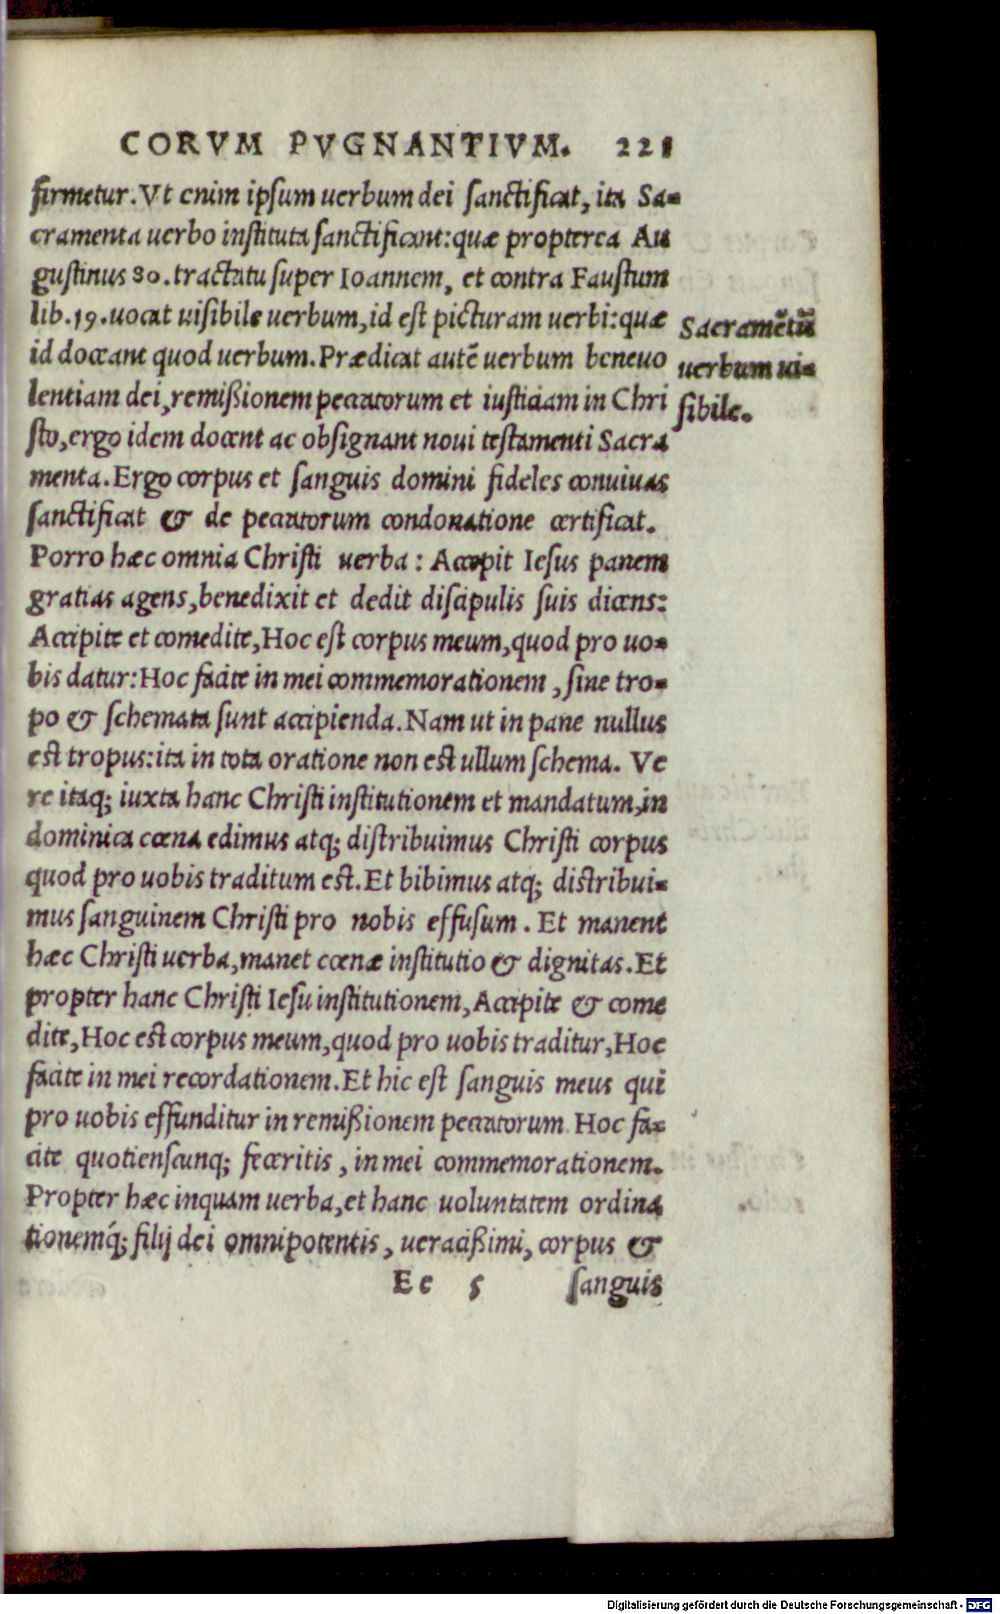 CORVM PVGNANTIVM. 221
firmetur. Vt enim ipsum uerbum dei sanctificat, ita Sa=
cramenta uerbo instituta sanctificant: quæ propterea Au
gustinus 80. tractatu super Ioannem, et contra Faustum
lib. 19. uocat uisibile uerbum, id est picturam uerbi: quæ
id doceant quod uerbum. Prædicat autē uerbum beneuo
lentiam dei, remißionem peccatorum et iusticiam in Chri
sto, ergo idem docent ac obsignant noui testamenti Sacra
menta. Ergo corpus et sanguis domini fideles conuiuas
sanctificat & de peccatorum condonatione certificat.
Porro hæc omnia Christi uerba: Accepit Iesus panem
gratias agens, benedixit et dedit discipulis suis dicens:
Accipite et comedite, Hoc est corpus meum, quod pro uo=
bis datur: Hoc facite in mei commemorationem, sine tro=
po & schemata sunt accipienda. Nam ut in pane nullus
est tropus: ita in tota oratione non est ullum schema. Ve
re itaq; iuxta hanc Christi institutionem et mandatum, in
dominica cœna edimus atq; distribuimus Christi corpus
quod pro uobis traditum est. Et bibimus atq; distribui=
mus sanguinem Christi pro nobis effusum. Et manent
hæc Christi uerba, manet cœnæ institutio & dignitas. Et
propter hanc Christi Iesu institutionem, Accipite & come
dite, Hoc est corpus meum, quod pro uobis traditur, Hoc
facite in mei recordationem. Et hic est sanguis meus qui
pro uobis effunditur in remißionem peccatorum. Hoc fa=
cite quotienscunq; feceritis, in mei commemorationem.
Propter hæc inquam uerba, et hanc uoluntatem ordina
tionemq́; filij dei omnipotentis, ueracißimi, corpus &
Ee 5 sanguis
Sacramētū
uerbum ui=
sibile.
Digitalisierung gefördert durch die Deutsche Forschungsgemeinschaft - DFG